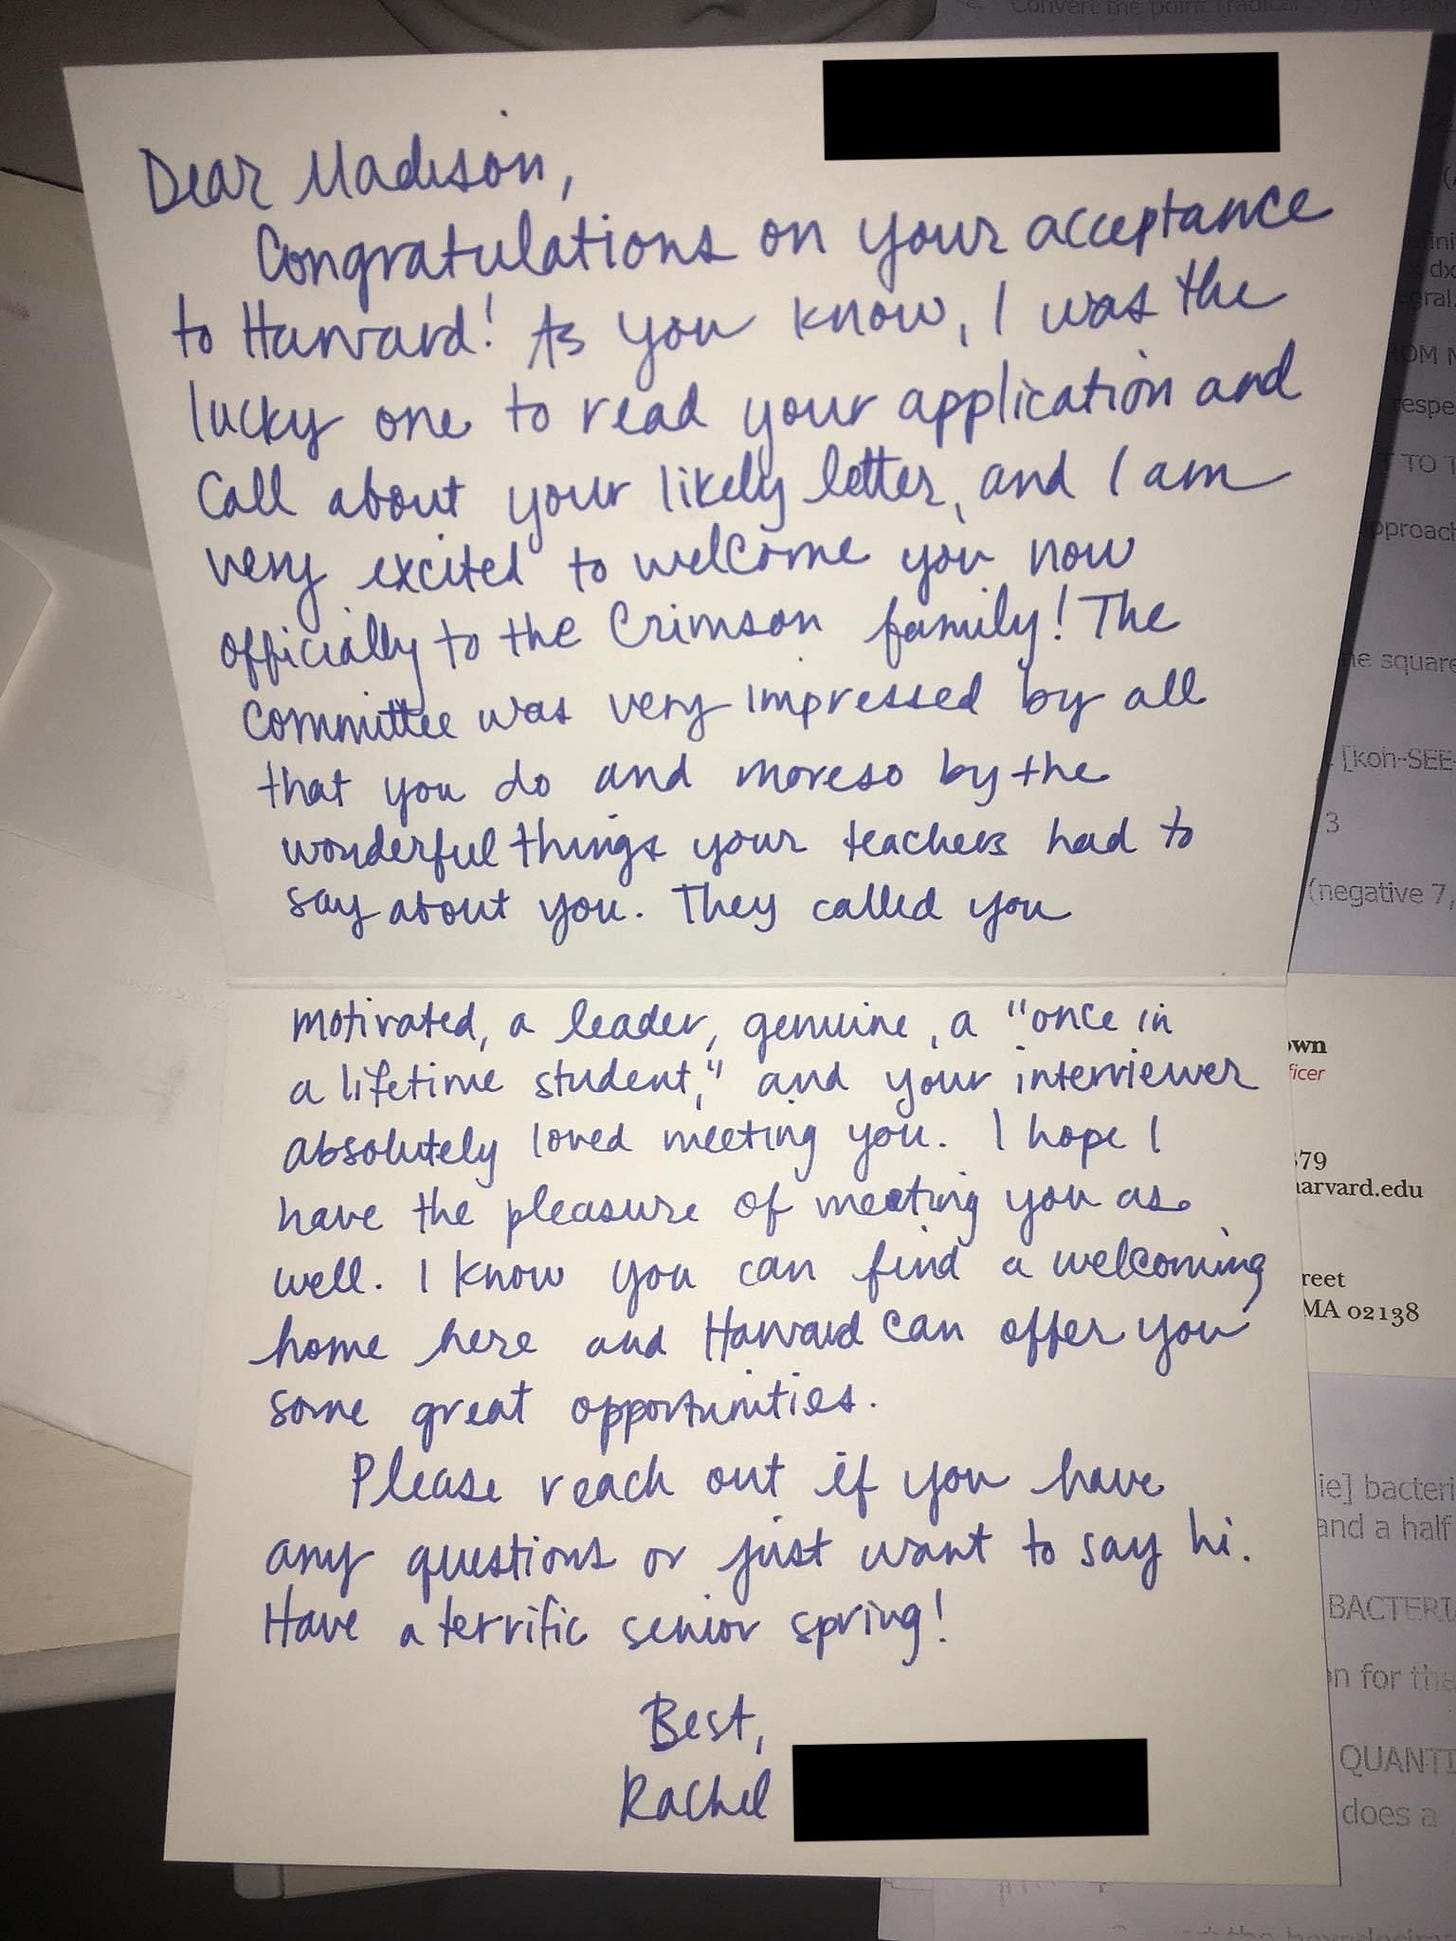 Dear Madison,
Congratulations on your acceptance
to Harvard! As you know, I was the
lucky one to read your application and
call about your likely letter, and I am
very excited to welcome you now
officially to the Crimson family! The
committee was very impressed by all
that you do and moreso by the
wonderful things your teachers had to
say about you. They called you
motivated, a leader, genuine, a "once in
a lifetime student," and your interviewer
absolutely loved meeting you. I hope I
have the pleasure of meeting you as
well. I know you can find a welcoming
home here and Harvard can offer you
some great opportunities.
Please reach out if you have
any questions or just want to say hi.
Have a terrific senior spring!
Best,
Rachel
Convert the point (radical
dx
egral
OM
respe
TO
pproach
he square
[koh-SEE-
3
(negative 7,
own
ficer
79
harvard.edu
reet
MA 02138
ie] bacteri
and a half
BACTERI
on for the
QUANTI
does a